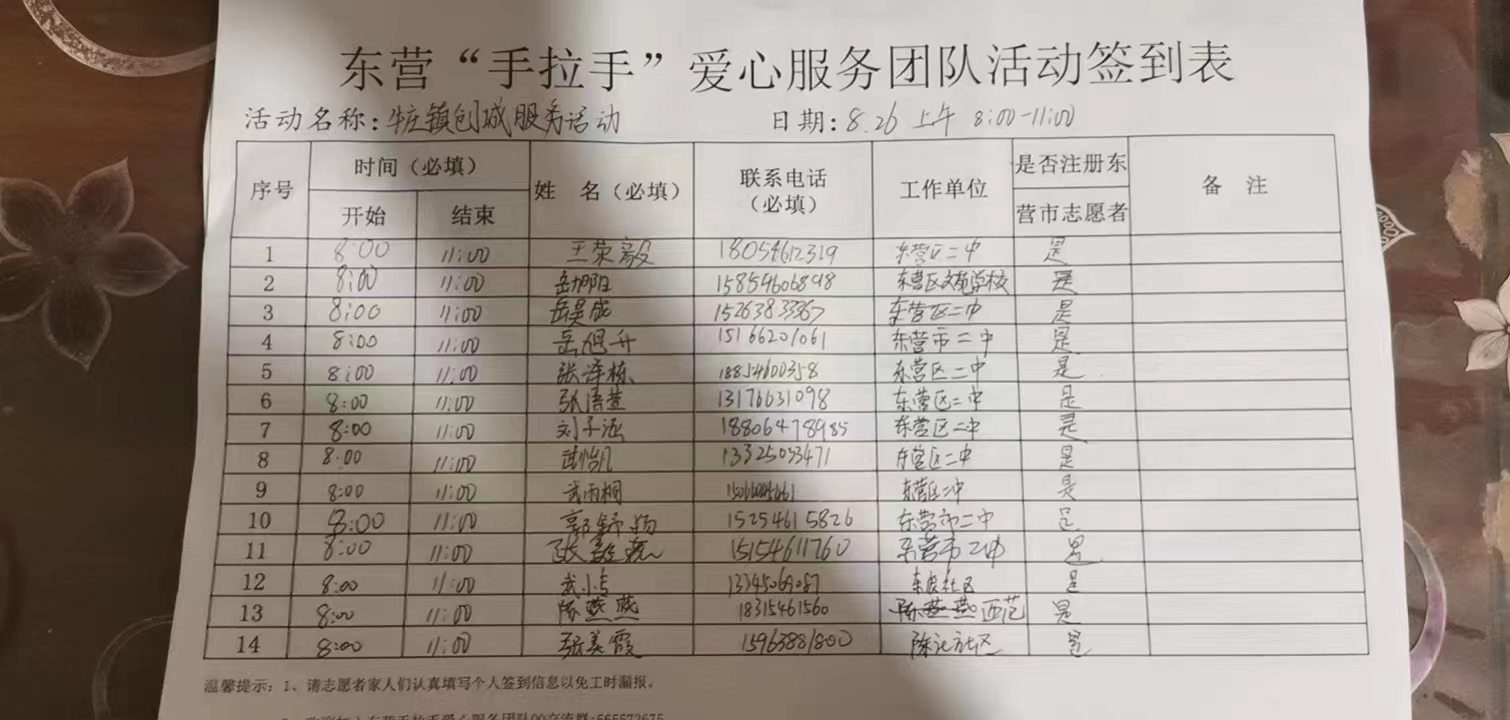 东营“手拉手”爱心服务团队活动签到表
活动名称：牛庄镇创城服务活动 日期：8.26 上午 8:00-11:00
序号 时间（必填） 姓 名（必填） 联系电话（必填） 工作单位 是否注册东营市志愿者 备 注
开始 结束
1 8:00 11:00 王荣毅 18054612319 东营区二中 是
2 8:00 11:00 15854606898 东营区 学校 是
3 8:00 11:00 岳昊成 15263833367 东营区二中 是
4 8:00 11:00 岳旭升 15166201061 东营市二中 是
5 8:00 11:00 张泽栋 18854600358 东营区二中 是
6 8:00 11:00 13176631098 东营区二中 是
7 8:00 11:00 刘子涵 18806478985 东营区二中 是
8 8:00 11:00 武怡凡 13325033471 东营区二中 是
9 8:00 11:00 武雨桐 东营区二中 是
10 8:00 11:00 15254615826 东营市二中 是
11 8:00 11:00 15154611760 东营市二中 是
12 8:00 11:00 13345069087 社区 是
13 8:00 11:00 陈燕燕 18315461560 西范 是
14 8:00 11:00 张美霞 15963881800 社区 是
温馨提示：1、请志愿者家人们认真填写个人签到信息以免工时漏报。